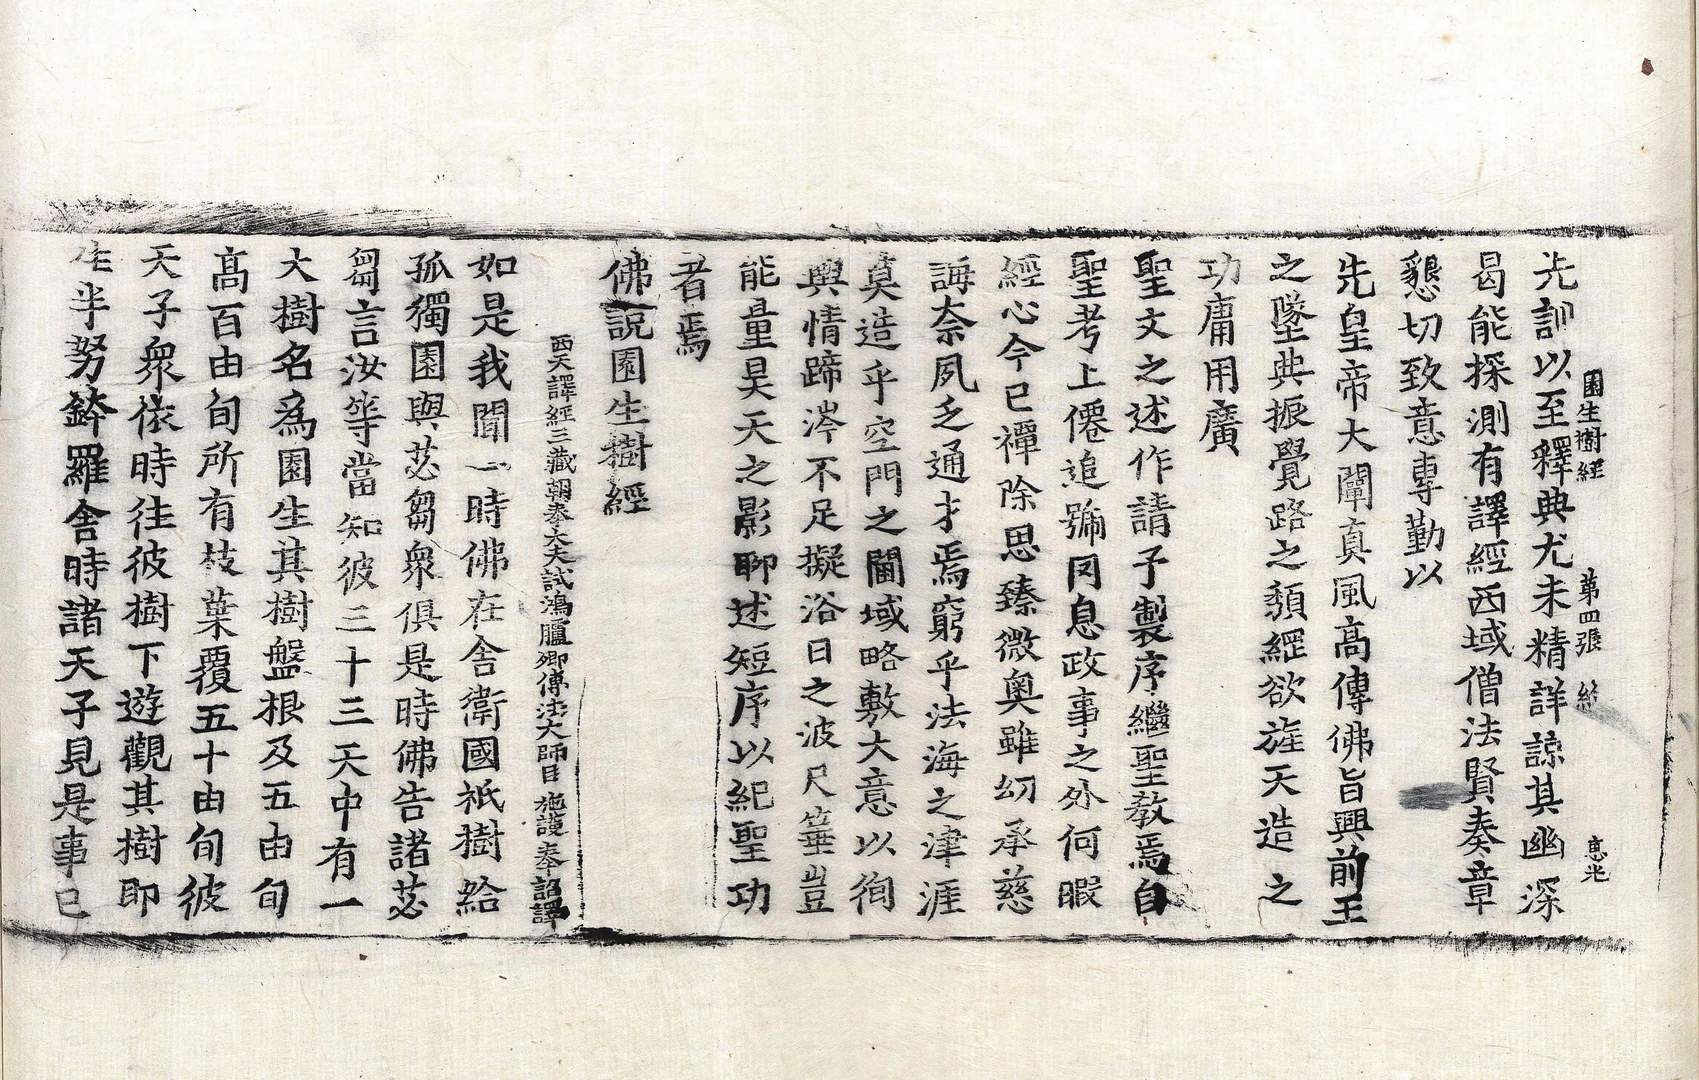 園生樹經 第四張 絲 惠光
先訓以至釋典尤未精詳諒其幽深
曷能探測有譯經西域僧法賢奏章
懇切致意專勤以
先皇帝大闡真風高傳佛旨興前王
之墜典振覺路之頹綱欲旌天造之
功庸用廣
聖文之述作請予製序繼聖教焉自
聖考上僊追號罔息政事之外何暇
經心今已禫除思臻微奥雖叨承慈
誨奈夙乏通才焉窮乎法海之津涯
莫造乎空門之閫域略敷大意以徇
輿情蹄涔不足擬浴日之波尺箠豈
能量昊天之影聊述短序以紀聖功
者焉
佛說園生樹經
西天譯經三藏朝奉大夫試鴻臚卿傳法大師臣 施護奉 詔譯
如是我聞一時佛在舍衛國祇樹給
孤獨園與苾芻眾俱是時佛告諸苾
芻言汝等當知彼三十三天中有一
大樹名爲園生其樹盤根及五由旬
高百由旬所有枝葉覆五十由旬彼
天子眾依時往彼樹下遊觀其樹即
生半努鉢羅舍時諸天子見是事已